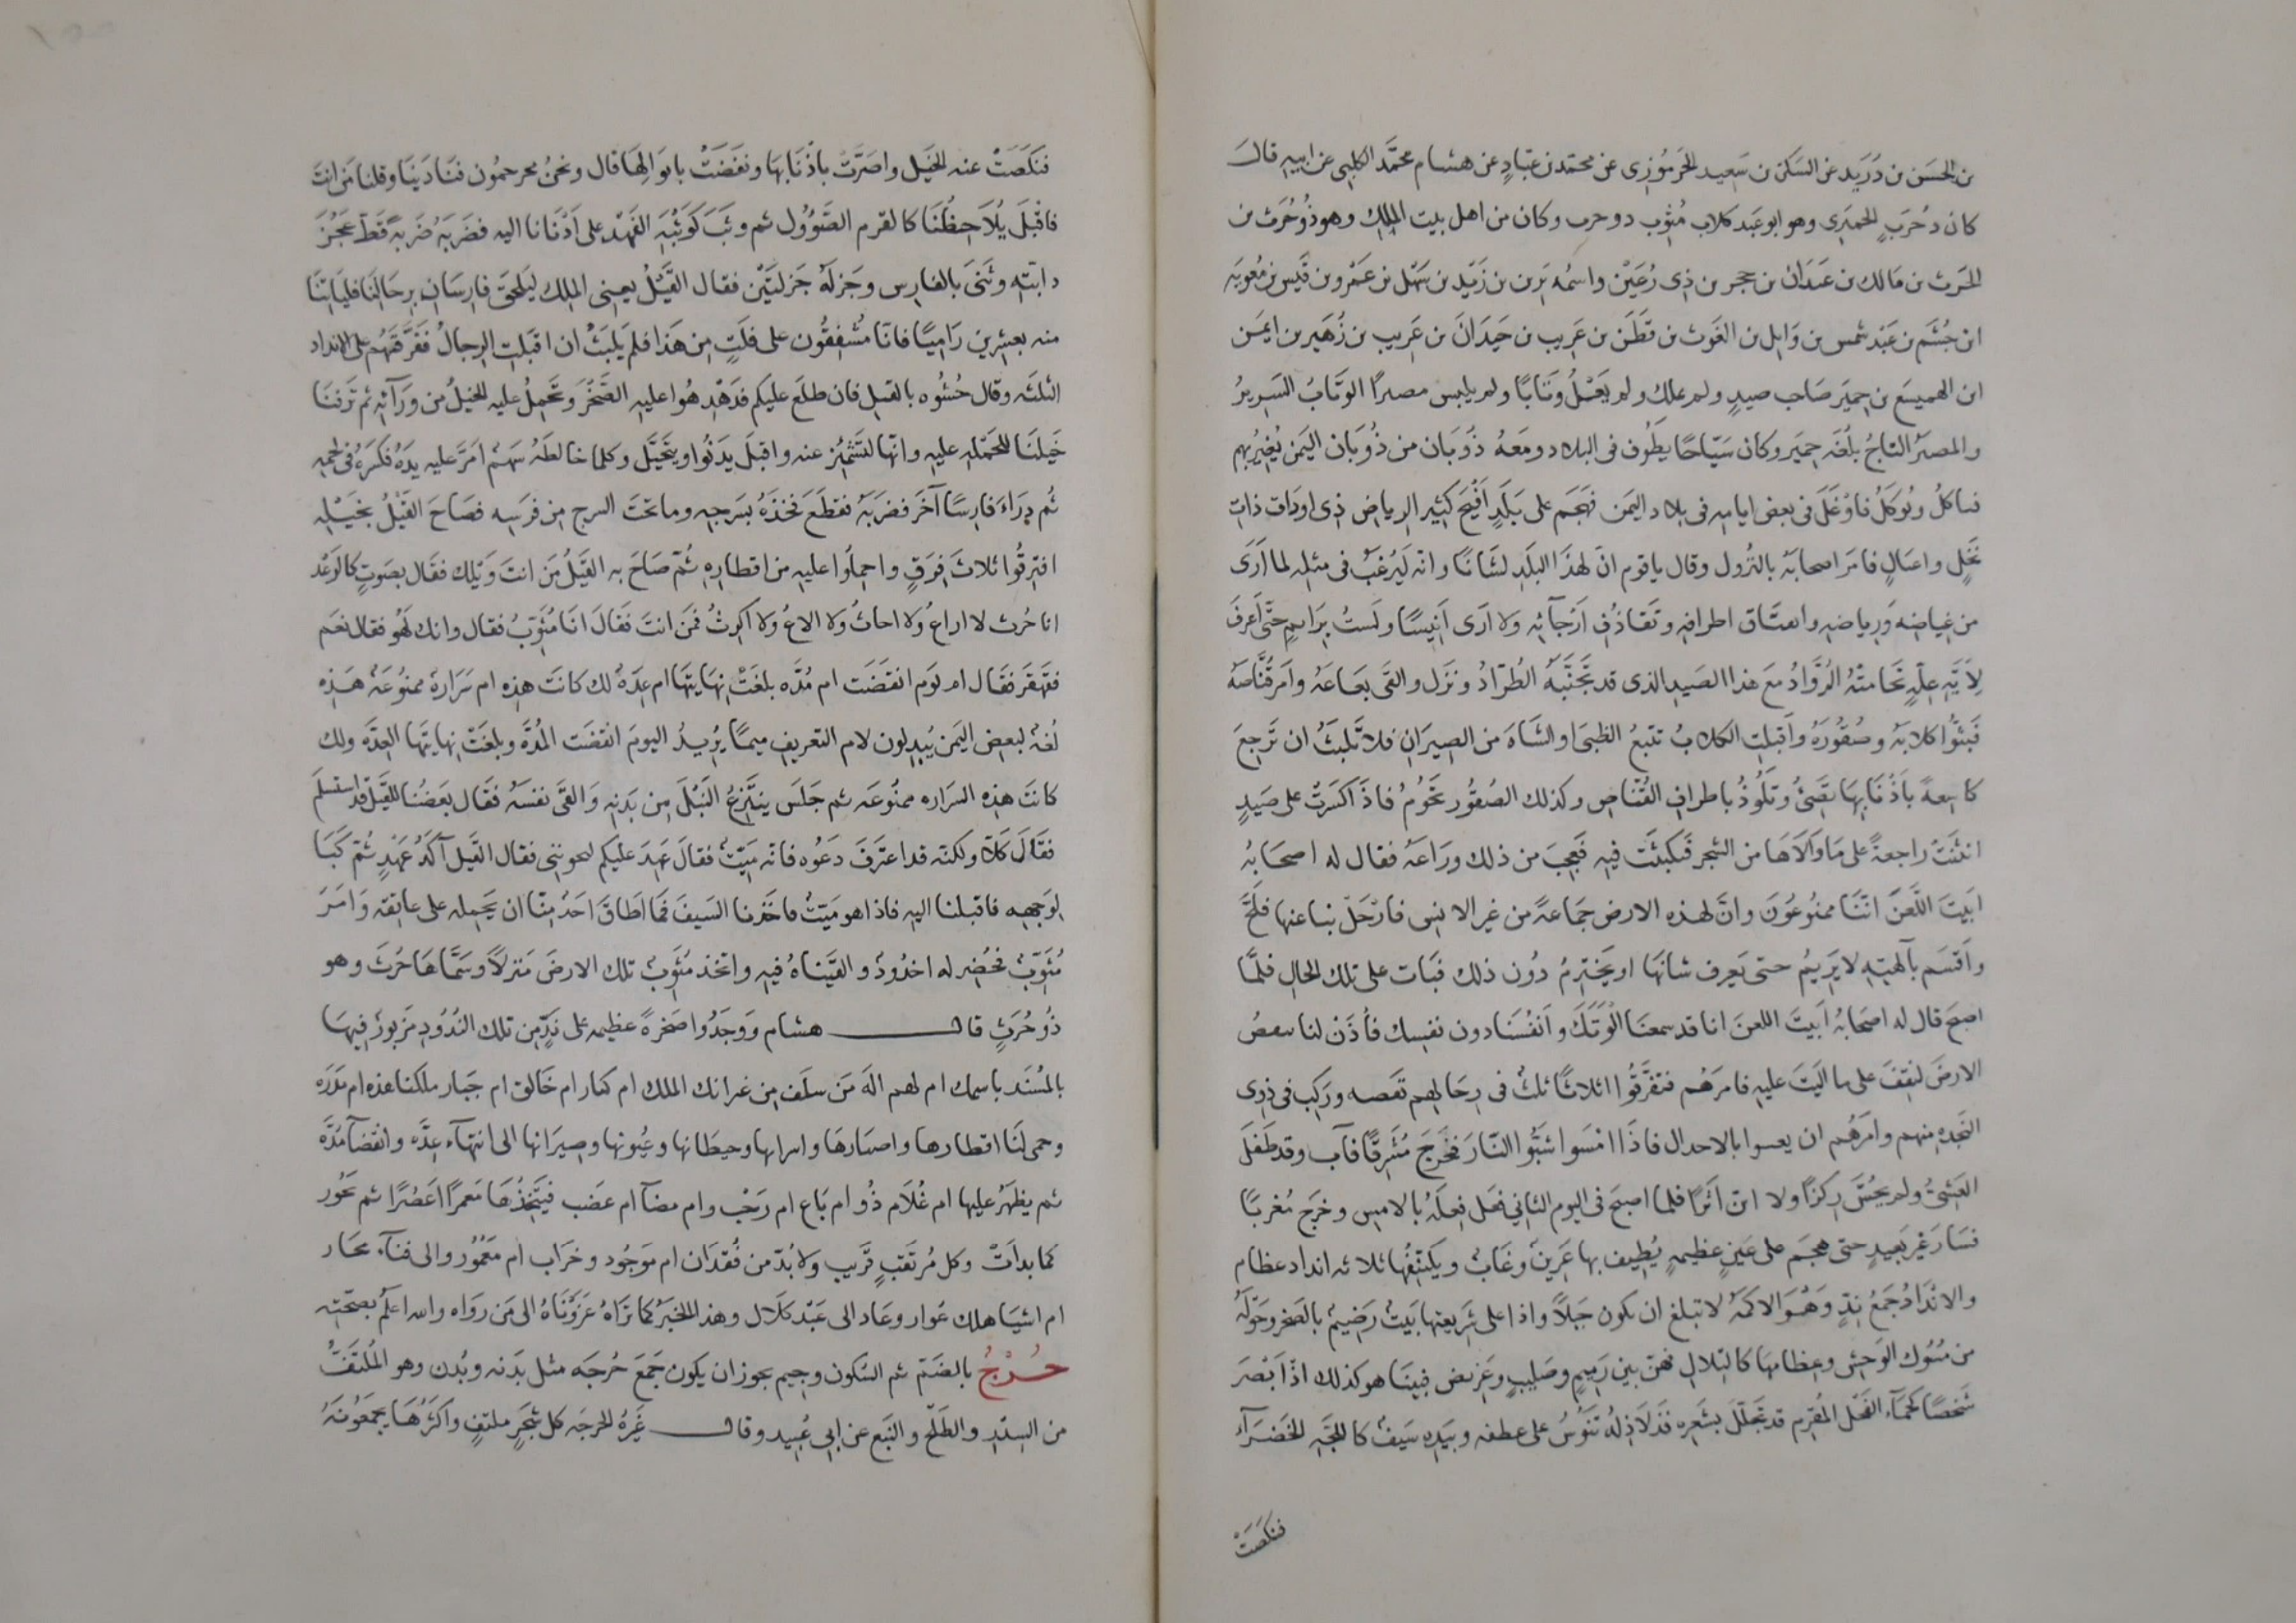 بن الحسَن بن دُرَيد عن السَكن بن سَعيد الجَرمُوزى عن محمد بن عبَادٍ عن هشام محمَّد الكلبى عن ابيهِ قالَ
كان ذُ حُرَبٍ الحميَرى وهو ابو عَبد كلاب مُثوِب ذو حرب وكان من اهل بيت المِلك وهو ذُو حُرَث بن
الحَرث بن مَالك بن عَيدَان بن حجر بن ذِى رُعَيْن واسمُه يَرِن بن زَيْد بن سَهْل بن عَمْرو بن قَيس بن مُعويَه
ابن جُشَم بن عَبْد شمس بن وَايِل بن الغَوث بن قَطَن بن عَريب بن حَيدَانَ بن عَريب بن زُهَير بن ايمَن
ابن الهميسَع بن حِميَر صَاحب صيدٍ ولم يملك ولم يَعْلُ وثَابًا ولم يلبس مصرًا الوثَابُ السَريرُ
والمصرُ التاجُ بلُغَه حِميَر وكان سَيّاحًا يطَوُف فى البلاد ومعَهُ ذُوبَان من ذُوبَان اليَمن يُغِيرُ بهم
فياكلُ ويُوكَلُ فاوُغَلَ فى بعض ايامِه فى بلاد اليَمن فهَجَم على بَلَدٍ اَفْيَحَ كَثيِر الرِياض ذِى اودَات ذات
نَخْلٍ واغيَالٍ فامَرَ اصحابَهُ بالنُزول وقال ياقوم انَ لهذَا البلَدِ لشَانًا وانّه لَيُرغبُ فى مثلِه لما اَرَى
من غِياضِه وَرِياضهِ وانعتَاق اطرافهِ وتَقَاذُفِ اَرْجَآئه ولا اَرَى اَنيِسًا ولَستُ برَايمٍ حتَّى اَعرفَ
لِاَيَّهِ علّةٍ تحَامتْهُ الرُوَّادُ مَعَ هذا الصَيد الذى قد تَجنَّبَهُ الطُرّادُ ونزَل والقَى بعَاعَهُ وامَرَ قُنَّاصَهُ
فَبثُّوا كلابَهُ وصُقُورَهُ وأَقبلت الكلابُ تتبعُ الظبىَ او الشَاةَ من الصِيرَانِ فلا تَلبَثُ ان تَرجِعَ
كاسِعةً بأَذْنَابِهَا تضَئُ وتَلُوذُ باطرافِ القُنّاص وكذلك الصُقُور تحَوُمُ فاذَا كسَرَتْ على صَيدٍ
انثنَتْ راجعةً على مَا وَالاَهَا من الشجر فكبثَت فيه فعَجِبَ من ذلك ورَاعَهُ فقال له اصحَابهُ
ابَيتَ اللَّعنَ انَّنَا ممنُوعُونَ وانَّ لهذه الارض جَماعَةً من غير الانس فارْحَل بنا عنها فلَجَّ
واَقسَم بآلهَتِه لايَريمُ حتى يَعرف شانهَا او يختَرمُ دوُن ذلك فبَات على تلك الحَال فلمَّا
اصبحَ قال له اصحَابهُ اَبيتَ اللعنَ انا قد سمعنَا اَلْوَتكَ واَنفسُنَا دون نفسِك فأذَنْ لنا ننفض
الارضَ لنقِفَ على ما اليَت عليِه فامرَهُم فتفَرَّقُوا اثلاثًا ثلثٌ فى رحَالهم تعَصه ورَكِب فى ذوِى
النَجدَه منهم وامَرَهُم ان يعسوا بالاحدال فاذَا امْسَوا شبُّوا النَارَ فخَرَجَ مُشَرقًا فآب وقد طَفَلَ
العَشِىُّ ولم يحُسَّ رِكزًا ولا ابنّ اَثرًا فلما اصبحَ فى اليوم الثانى فعَل فِعلَهُ بالامسِ وخرَج مُغربًا
فسَارَ غيرَ بَعيدٍ حتى هجَم على عَينٍ عظيمهٍ يُطيِف بها عَرينٌ وغَابٌ ويكتَنِفُها ثلاثه انداد عظام
والانْدَادُ جَمعُ نِدّ وَهُوَ الاكمَهُ لا تبلغ ان يكون جبَلاً واذا على شَريِعتِها بَيتٌ رَضيِمٌ بالصَخر وحَوْلَهُ
من مُسُوك الوَحش وعِظامِها كالتِلال فهُن بين رَمِيمٍ وصَليبٍ وعَرِيض فبينَا هو كذلك اذ ابَصْرَ
شَخصًا كَجماء الفَحْل المُقرم قد تَجلّلَ بشعَره فذَلاَذِلُهُ تنَوُسُ على عطفه وبيَدِه سَيفٌ كاللجَّهِ الخَضرَآءِ
فنكصَتْ
فنكَصَتْ عنه الخَيل واصَرَّتْ باذْنَابهَا ونفَضَتْ بابوَالهَا قال ونحنُ محرجمُون فنَادَينَا وقلنا مَن انتَ
فاقْبلَ يُلاَحِظُنَا كالقرم الصَؤُول ثم وثَبَ كوَثبَهِ الفَهْد على اَدْنَانا اليه فضَربَهُ ضَربهً قَطَّ عَجُزَ
دابّتهِ وثَنى بالفارس وجَزلَهُ جَزلتَيْن فقال القَيْلُ يعنِى المِلك ليَلحَق فارِسَان برحَالنَا فليَاتنَا
منه بعشِرين رَاميًا فانَّا مُشْفِقُون على فلَتٍ من هَذا فلَم يلبَثْ ان اقبَلت الرجالُ ففَرَّقهُم على الانداد
الثلثَه وقال حُشُوه بالقبل فان طلَعَ عليكم فدَهْدِهُوا عليه الصَّخْرَ وتَحمِلُ عليه الخيلُ من وَرَآئه ثم نزَفنَا
خَيلنَا للحَملهِ عليه وانَّها لتَشمئِز عنه واقبلَ يدَنُوا ويختَيَل وكلما خالطَهُ سَهم امَرَّ عليه يدَهُ فكسَرهُ فى لحمه
ثُم دَرَاءَ فارسًا آخَرَ فضربَهُ فقطَعَ فخِذَهُ بسَرجه وماتحَت السرج من فرَسِه فصَاحَ القَيْلُ بخَيلِه
افتَرقُوا ثلاثَ فِرَقٍ واحملُوا عليهِ من اقطارهِ ثُمّ صَاحَ به القَيلُ مَن انتَ وَيلك فقال بصَوتٍ كالرعْدِ
انا حُرث لا اراعُ وَلا احاثُ ولا الاعُ ولا اكرثُ فمَن انتَ فقَالَ انا مُثَوّبُ فقال وانك لَهُو فقال نعَم
فقَهقَر فقَال ام يوَم انقضَت ام مُدَّه بلغَتْ نهايتهَا ام عِدَهُ لك كانَت هذِه ام سَرَارة ممنوُعَهً هَذِه
لغَهٌ لبعض اليمَن يُبدِلون لام التعرِيف ميمًا يُرِيدُ اليومَ انقضَت المُدّه وبلغَتْ نهايتَها العِدَّه ولك
كانَت هذهِ السَراره ممنُوعَه ثم جَلَس ينَتَزعُ النَبْلَ من بَدنهِ وَالقَى نفسَهُ فقَال بعَضُنا للقَيل قد استَسْلَم
فقَالَ كَلاّ ولكنّه قد اعتَرَفَ دَعُوه فانّه مَيّتٌ فقالَ عَهدَ عليكم لتحفرننى فقال القَيل آكَدَ عَهْدٍ ثُمّ كَبَا
لوَجهِه فاقبَلنا اليهِ فاذا هو مَيّتٌ فاخَذْنا السَيفَ فما اَطَاقَ احَدُ منّا ان يَحمِله على عاتِقه وَامَرَ
مُثَوّبٌ فحُضِر له اخدُودٌ والقَيناهُ فيهِ واتخذ مُثوّبٌ تلك الارضَ مَنزلاً وسَمَّاهَا حُرثَ وهو
ذُو حُرَثٍ قال هشام ووَجَدُوا صَخرةً عظيمه على نَدٍّ من تلك النُدُودِ مَزبورٌ فيهَا
بالمُسْنَد باسمك ام لهم الهَ مَن سلَف ومن غبر انك الملك ام كبار ام خَالق ام جَبار ملكنا هذه ام مَدَرَه
وحمى لَنَا اقطارها واصبَارهَا واسرابها وحيطَانها وعُيونها وصِيرَانها الى انتهآء عِدَّه وانقضآ مُدَّه
ثم يظهَرُ عليها ام غُلاَم ذُو ام بَاع ام رَحْب وام مضآ ام عَضب فيَتَّخِذُهَا مَعمرًا اَعصُرًا ثم تحَوُر
كما بداَتْ وكل مُرتَقبٍ قريَب ولا بُدّ من فُقدَان ام موَجُود وخرَاب ام مَعْمُوُر والى فنآء محَار
ام اشيَا هلك عَوار وعَاد الى عَبْد كلَال وهذا الخبَرُ كما تَرَاهُ عَزَوْنَاهُ الى مَن روَاه والله اعلَمُ بصحّتِه
حُرْجٌ بالضَمّ ثم السُكون وجيم يجوز ان يكونَ جَمَعَ حُرجَه مثل بَدنه وبُدن وهو المُلتَفّ
من السِدْر والطَلْح والنَبع عن ابى عُبيد وقال غَيرهُ الحرجَه كل شجَرٍ ملتفٍ واكثرُهَا يجمَعُونَهُ